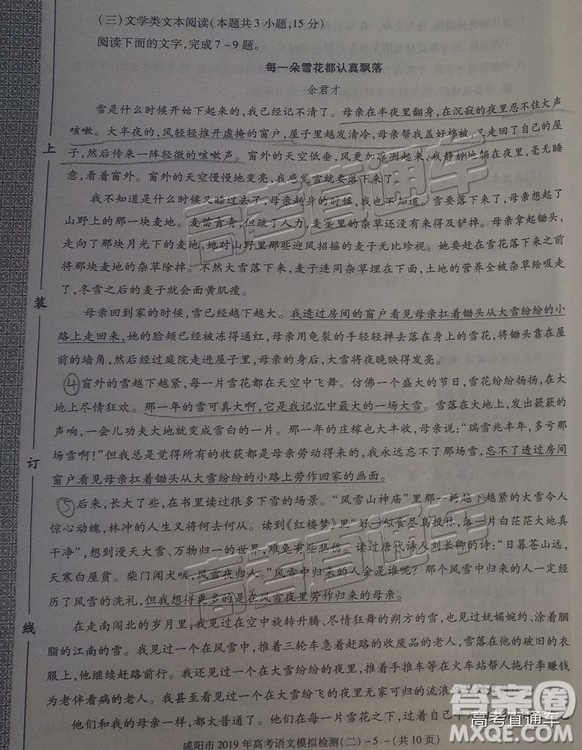 (三)文学类文本阅读(本题共3小题,15分)
阅读下面的文字,完成7~9题。
每一朵雪花都认真飘落
余君才
雪是什么时候开始下起来的,我已经记不清了。母亲在半夜里翻身,在沉寂的夜里忍不住大声
咳嗽。大半夜的,风轻轻推开虚掩的窗户,屋子里越发清冷,母亲帮我盖好棉被,又走回了自己的屋
子,然后传来一阵轻微的咳嗽声。窗外的天空低垂,风更加凛冽起来,我静静地躺在夜里,毫无睡
意,看着窗外。窗外的天空慢慢地变亮,我感觉雪就要落下来了。
我不知道是什么时候又睡过去了,母亲起身的时候,我也不知道。雪要落下来了,母亲想起了
山野上的那一块麦地。麦苗青青,但现了人力,麦垄里的杂草还没有来得及铲掉。母亲拿起锄头,
走向了那块月光下的麦地,绝对山野里那些迎风招摇的麦子无比珍视。她要赶在雪花落下来之前
将这块麦地的杂草除掉。不然大雪落下来,麦子连同杂草埋在下面,土地的营养全被杂草给吸走
了,冬雪之后的麦子就会面黄肌瘦。
母亲回到家的时候,雪已经越下越大。我透过房间的窗户看见母亲扛着锄头从大雪纷纷的小
路上走回来,她的脸颊已经被冻得通红,母亲用龟裂的手轻轻掸去落在身上的雪花,将锄头靠在屋
前的墙角,然后经过庭院走进屋子里,母亲的身后,大雪将夜晚映得发亮。
④窗外的雪越下越紧,每一片雪花都在天空中飞舞。仿佛一个盛大的节日,雪花纷纷扬扬,在大
地上尽情狂欢。那一年的雪可真大啊,它是我记忆中最大的一场大雪。雪落在大地上,发出簌簌的
声响,一会儿功夫大地就变成雪白的一片。那一年的庄稼也大丰收,母亲说:“瑞雪兆丰年,多亏那
场雪啊!”但我总是觉得所有的收获都是母亲劳动得来的,我永远忘不了那场雪,忘不了透过房间
窗户看见母亲扛着锄头从大雪纷纷的小路上劳作回家的画面。
⑤后来,长大了些,在书里读过很多下雪的场景。“风雪山神庙”里那一场越下越紧的大雪令人
惊心动魄,林冲的人生又将何去何从。读到《红楼梦》里“好一似食尽鸟投林,落一片白茫茫大地真
干净”,想到漫天大雪,万物归一的世界,难免有些悲伤。读过唐代诗人刘长卿的诗:“日暮苍山远,
天寒白屋贫。柴门闻犬吠,风雪夜归人。”风雪中归来的人会是谁呢?那个风雪中归来的人一定经
历了风雪的洗礼,但我想得更多的是在风雪夜里劳作归来的母亲。
在走南闯北的岁月里,我见过雪在空中旋转升腾、尽情狂舞的朔方的雪,也见过妩媚婉约、涂着胭
脂的江南的雪。我见过一个在风雪中推着三轮车急着赶路的收废品的老人,雪落在他的破旧的衣
服上,他继续赶路前行。我还见过一个在大雪纷纷的夜里,推着手推车等在火车站帮人拖行李赚钱
为老伴看病的老人。我甚至看见过一个在大雪纷飞的夜里无家可归的流浪
他们和我的母亲一样,都是普通大众。他们在每一个雪花
咸阳市2019年高考语文模拟检测(二) - 5 - (共10页)
上
装
订
线
高考直通车
答案圈
高考直通车